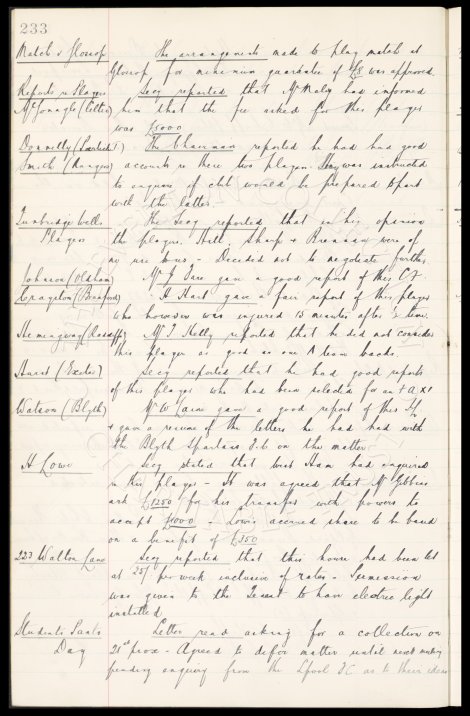 233
Match v Glossop The arrangements made to play match at
Glossop for minimum guarantee of was approved.
Reports re Players Secy reported that Mr Maley had informed
McGonagle (Celtic) him that the fee asked for this player
was £5000
Donnelly The Chairman reported he had had good
Smith (Rangers) accounts re these two players. was instructed
to enquire if club would be prepared to part
with the latter.
Tunbridge Wells The Secy reported that in his opinion
Players the players Hill Sharp + were of
no use to us - Decided not to negotiate further.
Johnson (Oldham) Mr gave a good report of this C.F.
Crayston (Bradford) H Hart gave a fair report of this player
who however was injured 15 minutes after time.
Hemingway Mr T Kelly reported that he did not consider
this player as good as our A team backs.
Hurst (Exeter) Secy reported that he had good reports
of this player who had been selected for an
Watson (Blyth) Mr W gave a good report of this
+ gave a resume of the letters he had had with
the Blyth Spartans F.C on the matter.
H Lowe Secy stated that West Ham had enquired
re this player - It was agreed that Mr Gibbins
ask £1250 for his transfer with powers to
accept £1000 - Lowe's accrued share to be based
on a benefit of £350
223 Walton Lane Secy reported that this house had been let
at 25/ per week inclusive of rates - Permission
was given to the Tenant to have electric light
installed.
Students Panto Letter read asking for a collection on
Day prox - Agreed to defer matter until next meeting
pending enquiry from the Lpool F.C as to their ideas